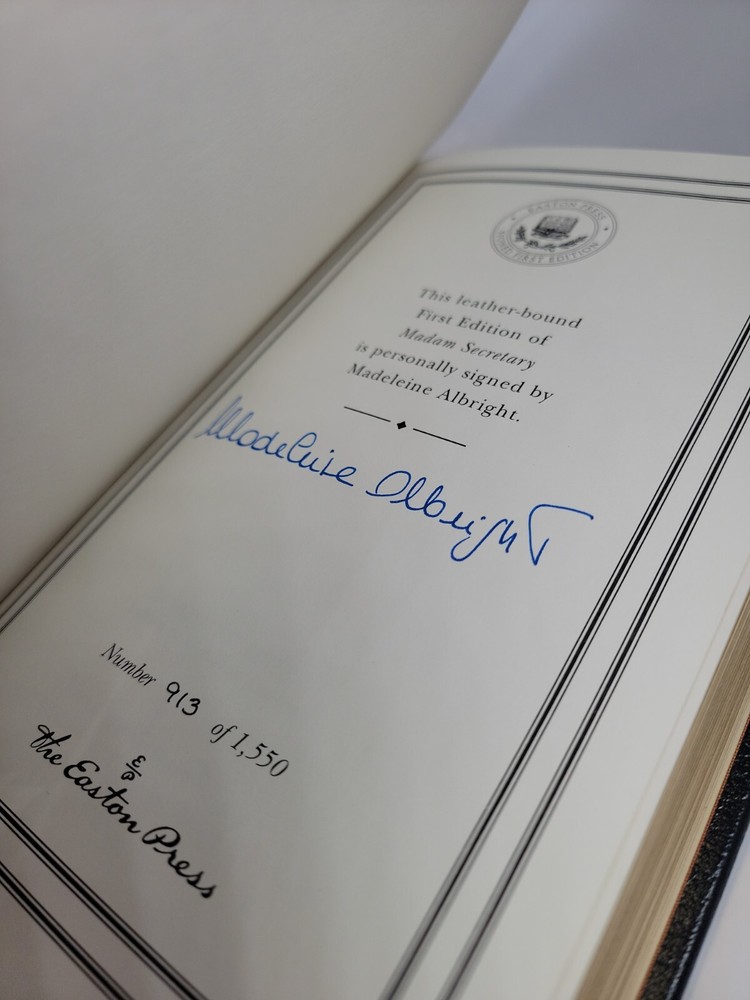 EASTON PRESS
SIGNED FIRST EDITION
This leather-bound
First Edition of
Madam Secretary
is personally signed by
Madeleine Albright.
Madeleine Albright
Number 913 of 1,550
E/P
The Easton Press